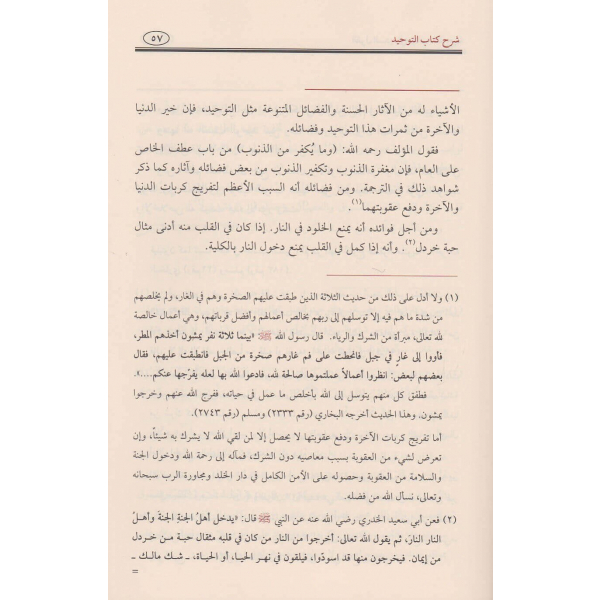 شرح كتاب التوحيد
٥٧
الأشياء له من الآثار الحسنة والفضائل المتنوعة مثل التوحيد، فإن خير الدنيا
والآخرة من ثمرات هذا التوحيد وفضائله.
فقول المؤلف رحمه الله: (وما يُكفر من الذنوب) من باب عطف الخاص
على العام، فإن مغفرة الذنوب وتكفير الذنوب من بعض فضائله وآثاره كما ذكر
شواهد ذلك في الترجمة. ومن فضائله أنه السبب الأعظم لتفريج كربات الدنيا
والآخرة ودفع عقوبتهما(١).
ومن أجل فوائده أنه يمنع الخلود في النار. إذا كان في القلب منه أدنى مثال
حبة خردل(٢). وأنه إذا كمل في القلب يمنع دخول النار بالكلية.
(١) ولا أدل على ذلك من حديث الثلاثة الذين طبقت عليهم الصخرة وهم في الغار، ولم يخلصهم
من شدة ما هم فيه إلا توسلهم إلى ربهم بخالص أعمالهم وأفضل قرباتهم، وهي أعمال خالصة
لله تعالى، مبرأة من الشرك والرياء. قال رسول الله ﷺ «بينما ثلاثة نفر يمشون أخذهم المطر،
فأووا إلى غارٍ في جبل فانحطت على فم غارهم صخرة من الجبل فانطبقت عليهم، فقال
بعضهم لبعض: انظروا أعمالاً عملتموها صالحة لله، فادعوا الله بها لعله يفرّجها عنكم....».
فطفق كل منهم يتوسل إلى الله بأخلص ما عمل في حياته، ففرج الله عنهم وخرجوا
يمشون. وهذا الحديث أخرجه البخاري (رقم ٢٣٣٣) ومسلم (رقم ٢٧٤٣).
أما تفريج كربات الآخرة ودفع عقوبتها لا يحصل إلا لمن لقي الله لا يشرك به شيئاً، وإن
تعرض لشيء من العقوبة بسبب معاصيه دون الشرك، فمآله إلى رحمة الله ودخول الجنة
والسلامة من العقوبة وحصوله على الأمن الكامل في دار الخلد ومجاورة الرب سبحانه
وتعالى، نسأل الله من فضله.
(٢) فعن أبي سعيد الخدري رضي الله عنه عن النبي ﷺ قال: «يدخل أهلُ الجنةِ الجنةَ وأهلُ
النار النارَ، ثم يقول الله تعالى: أخرجوا من النار من كان في قلبه مثقال حبة من خردل
من إيمان. فيخرجون منها قد اسودّوا، فيلقون في نهر الحيا، أو الحياة، ـ شك مالك ـ
=